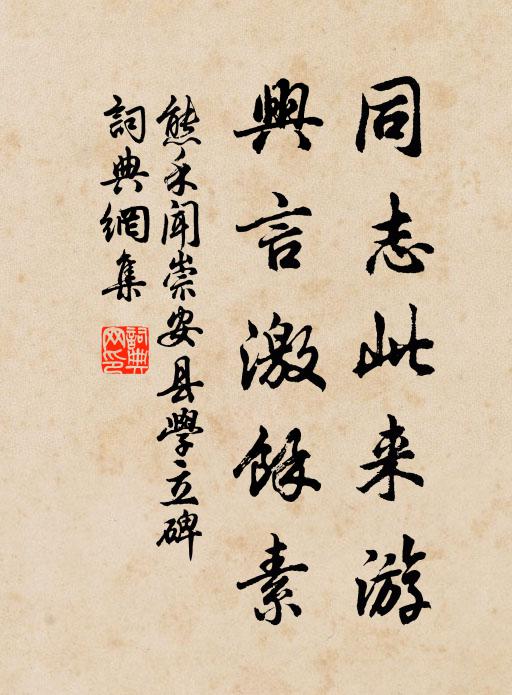 同志此来游
興言激餘素
熊禾聞崇安县學立碑
詞典網集
詞典网印